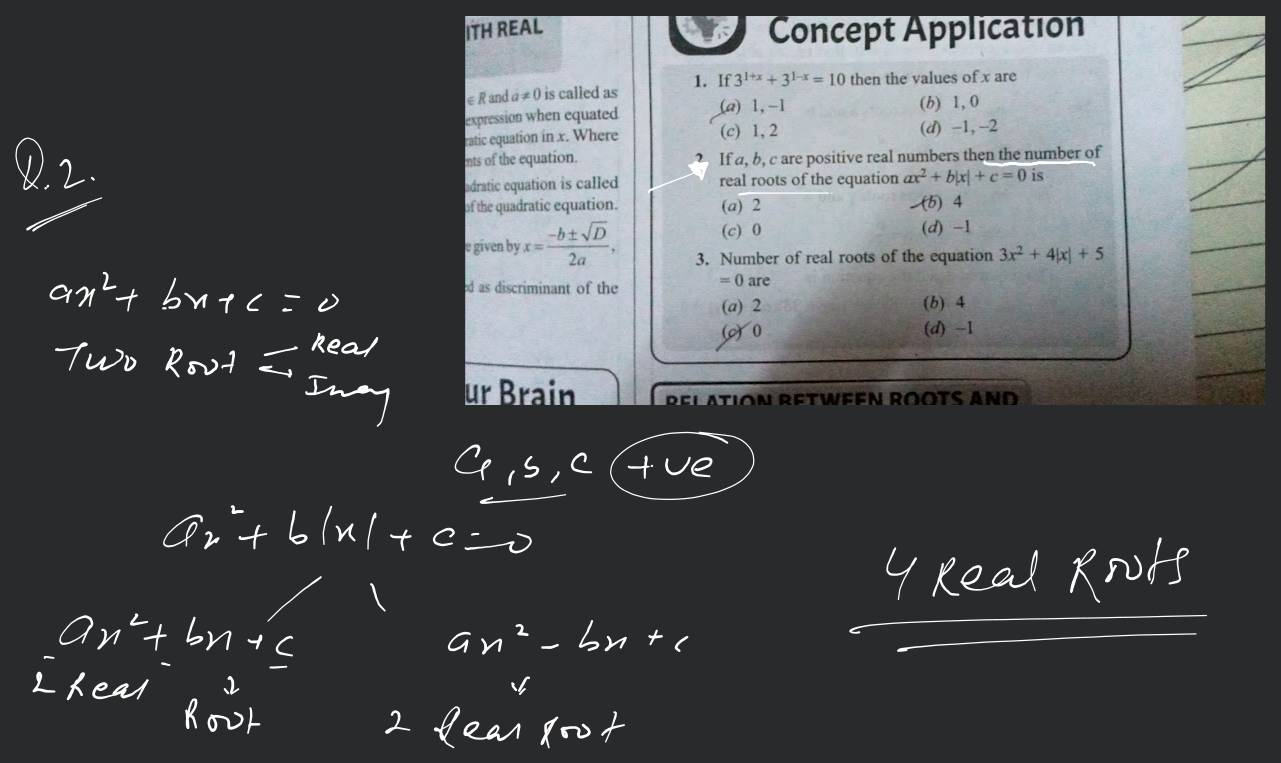 ITH REAL
∈ R and a ≠ 0 is called as
expression when equated
ratic equation in x. Where
nts of the equation.
adratic equation is called
of the quadratic equation.
e given by x = (-b ± √D)/2a,
ed as discriminant of the
ur Brain
Concept Application
1. If 3^(1+x) + 3^(1-x) = 10 then the values of x are
(a) 1, –1 (b) 1, 0
(c) 1, 2 (d) –1, –2
2. If a, b, c are positive real numbers then the number of
real roots of the equation ax² + b|x| + c = 0 is
(a) 2 (b) 4
(c) 0 (d) –1
3. Number of real roots of the equation 3x² + 4|x| + 5
= 0 are
(a) 2 (b) 4
(c) 0 (d) –1
RELATION BETWEEN ROOTS AND
Q.2.
ax² + bx + c = 0
Two Root
Real
Imag
a, b, c +ve
ax² + b|x| + c = 0
ax² + bx + c
2 Real
Root
ax² – bx + c
2 Real Root
4 Real Roots